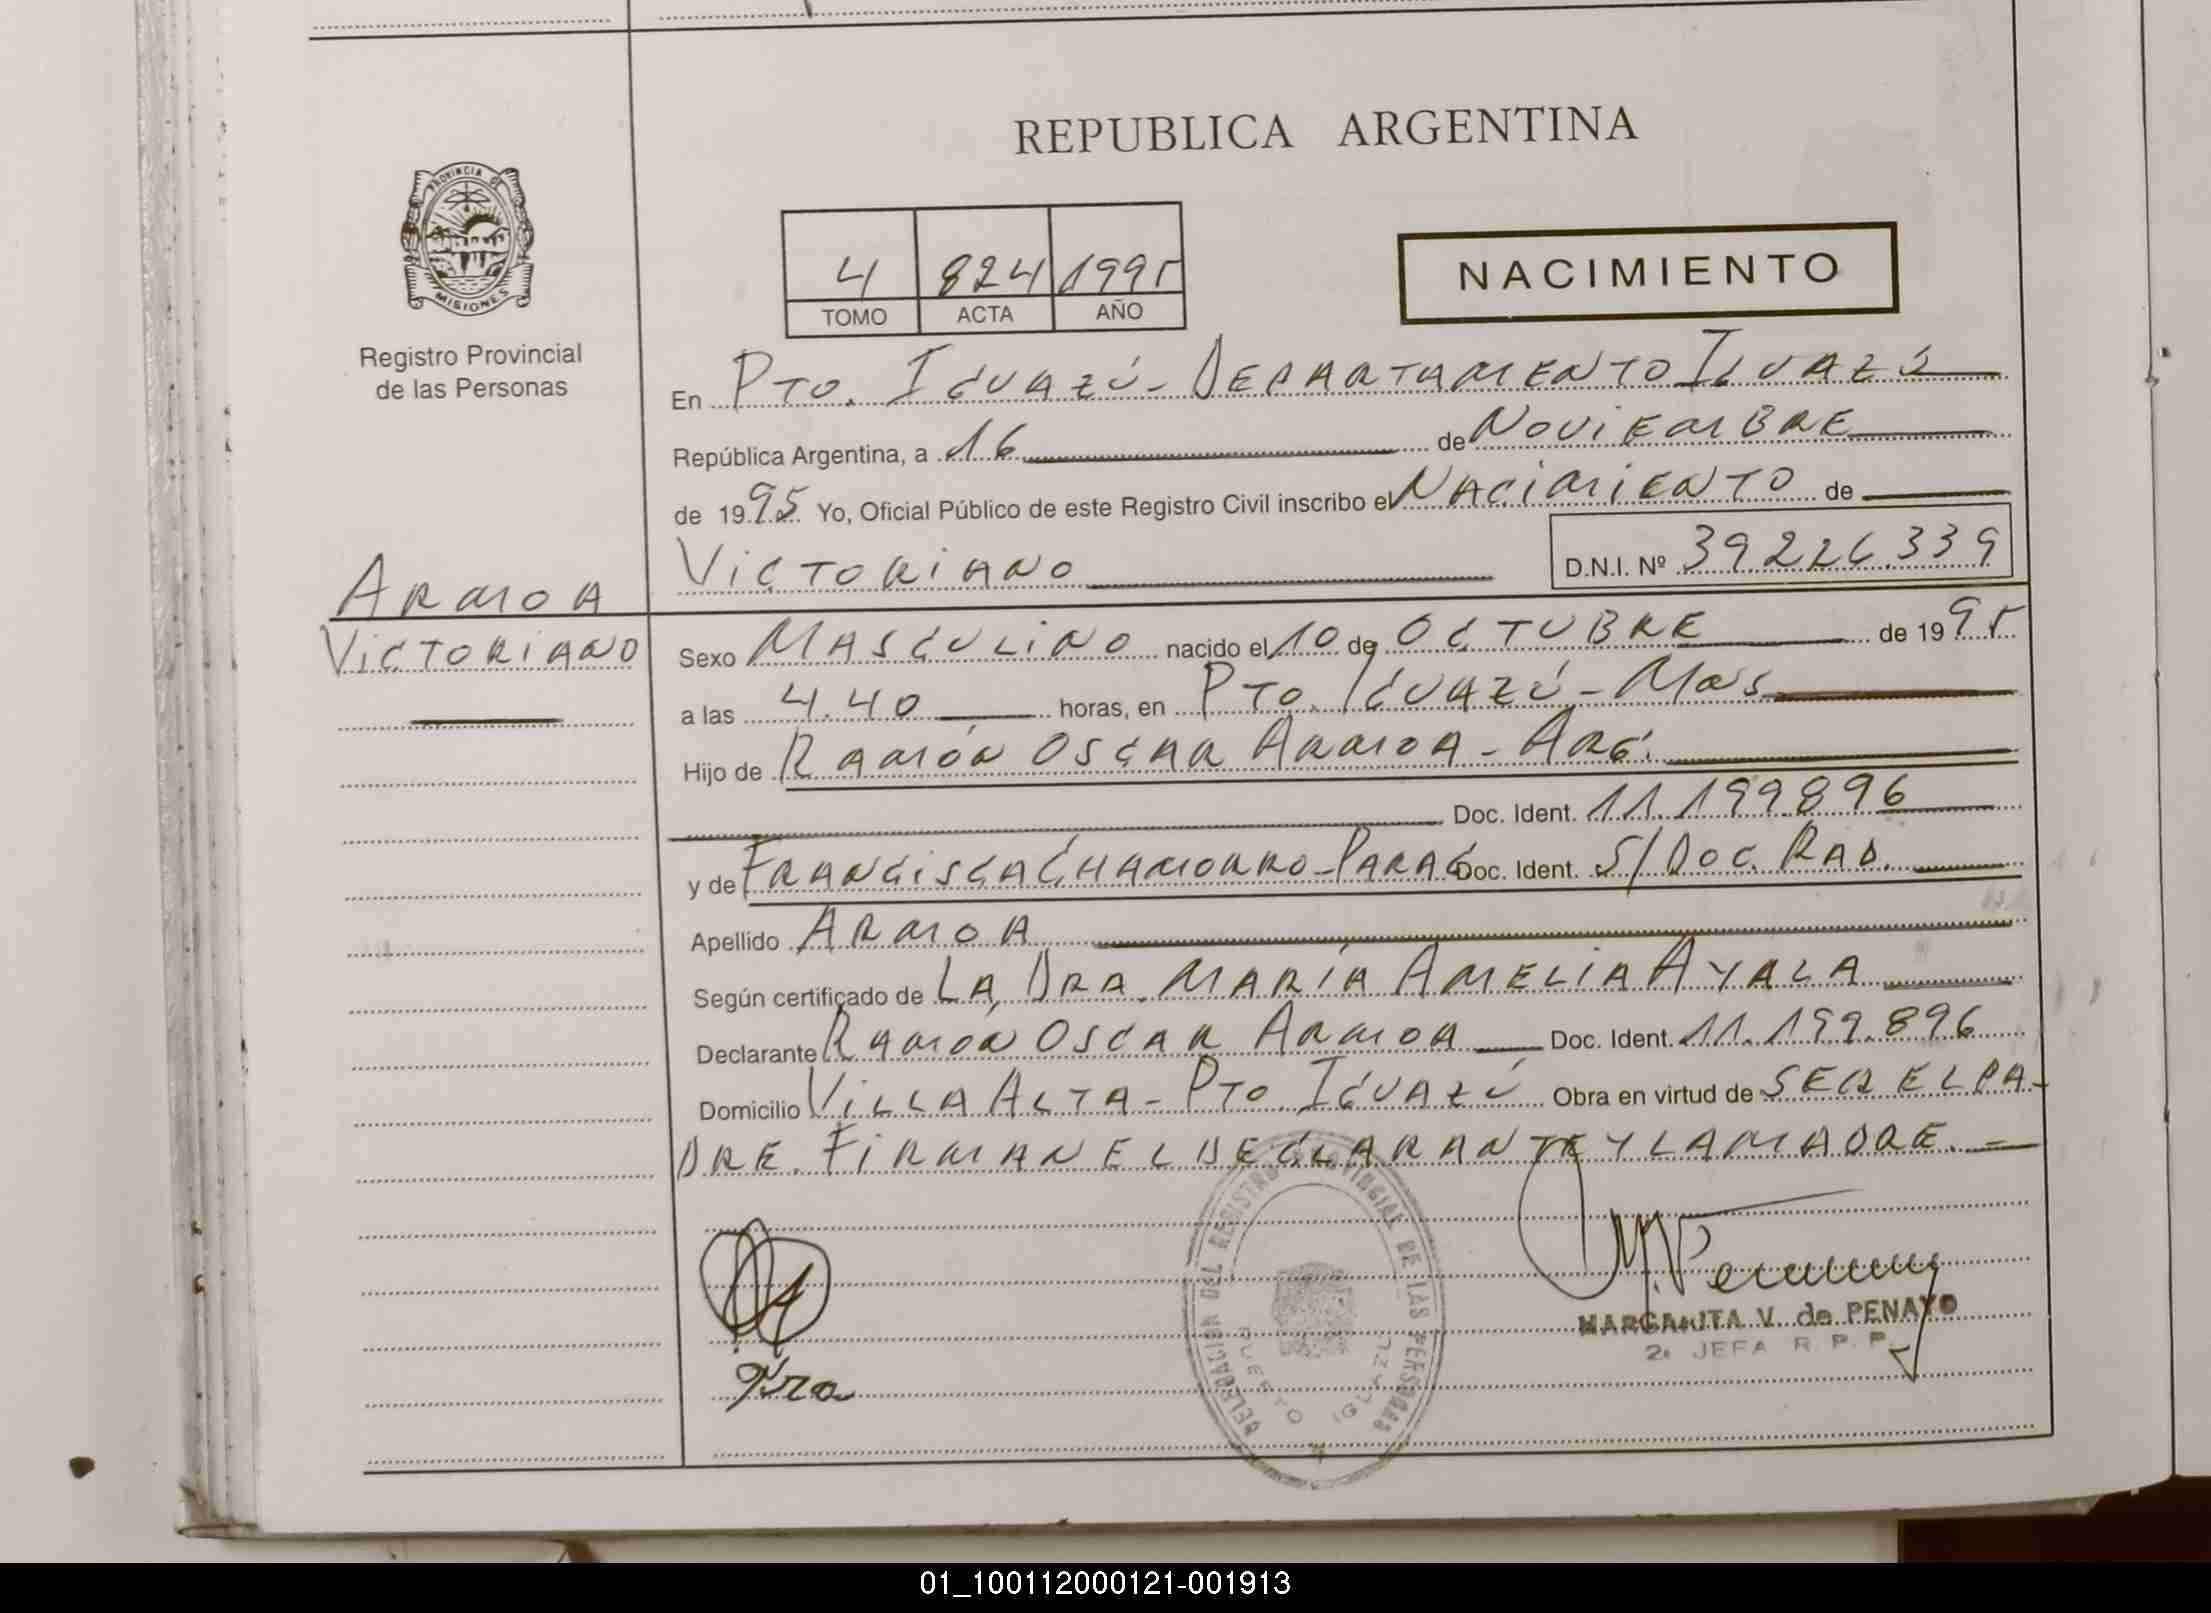 REPUBLICA ARGENTINA
PROVINCIA DE
MISIONES
Registro Provincial
de las Personas
4 824 1995
TOMO ACTA AÑO
NACIMIENTO
En PTO. IGUAZÚ - DEPARTAMENTO IGUAZÚ
República Argentina, a 16 de NOVIEMBRE
de 1995 Yo, Oficial Público de este Registro Civil inscribo el NACIMIENTO de
VICTORIANO D.N.I. Nº 39226.339
ARMOA
VICTORIANO
Sexo MASCULINO nacido el 10 de OCTUBRE de 1995
a las 4.40 horas, en PTO. IGUAZÚ - Mns
Hijo de RAMÓN OSCAR ARMOA - ARG.
Doc. Ident. 11.199.896
y de FRANCISCA CHAMORRO - PARAG Doc. Ident. S/DOC. RAD.
Apellido ARMOA
Según certificado de LA DRA. MARÍA AMELIA AYALA
Declarante RAMÓN OSCAR ARMOA Doc. Ident. 11.199.896
Domicilio VILLA ALTA - PTO. IGUAZÚ Obra en virtud de SER EL PA-
DRE. FIRMAN EL DECLARANTE Y LA MADRE. -
DELEGACION DEL REGISTRO PROVINCIAL DE LAS PERSONAS
PUERTO IGUAZU
MARGARITA V. de PENAYO
2a JEFA R. P. P.
01_100112000121-001913